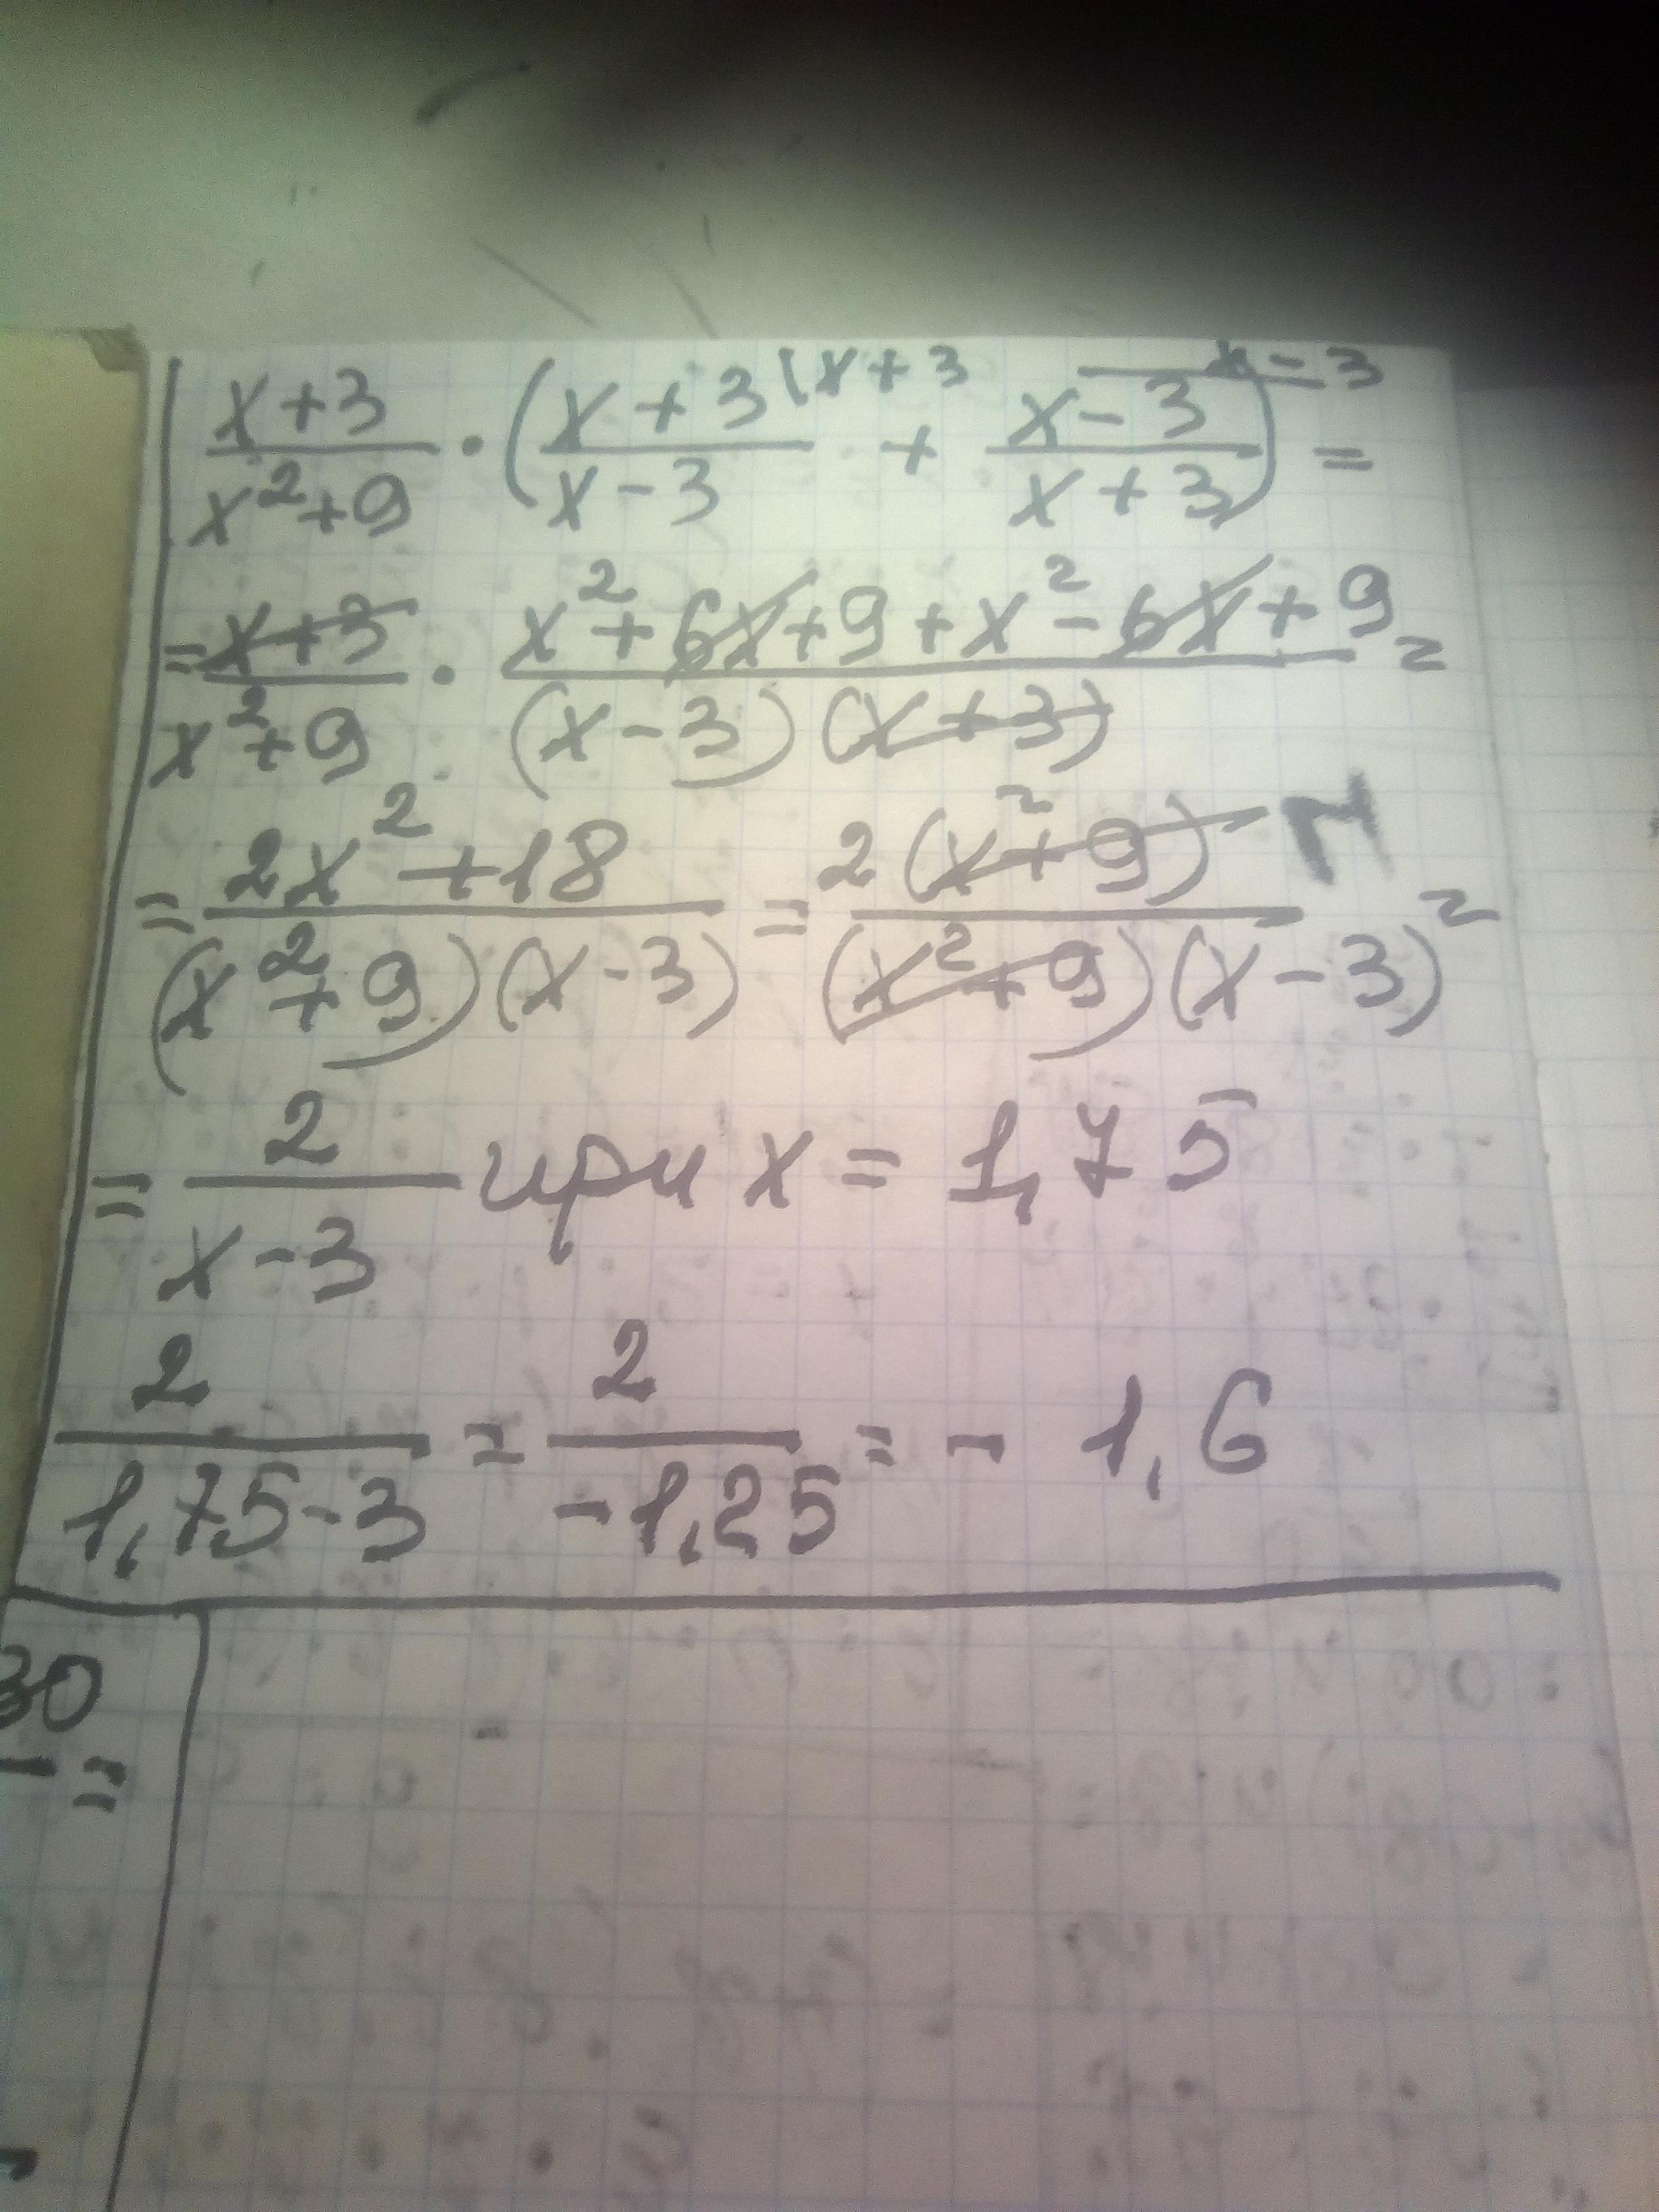 x+3/x²+9 · (x+3/x-3 (x+3 + x-3/x+3) x-3 =
= x+3/x²+9 · x²+6x+9+x²-6x+9/(x-3)(x+3) =
= 2x²+18/(x²+9)(x-3) = 2(x²+9)/(x²+9)(x-3) =
= 2/x-3 при x = 1,75
2/1,75-3 = 2/-1,25 = - 1,6
30
=